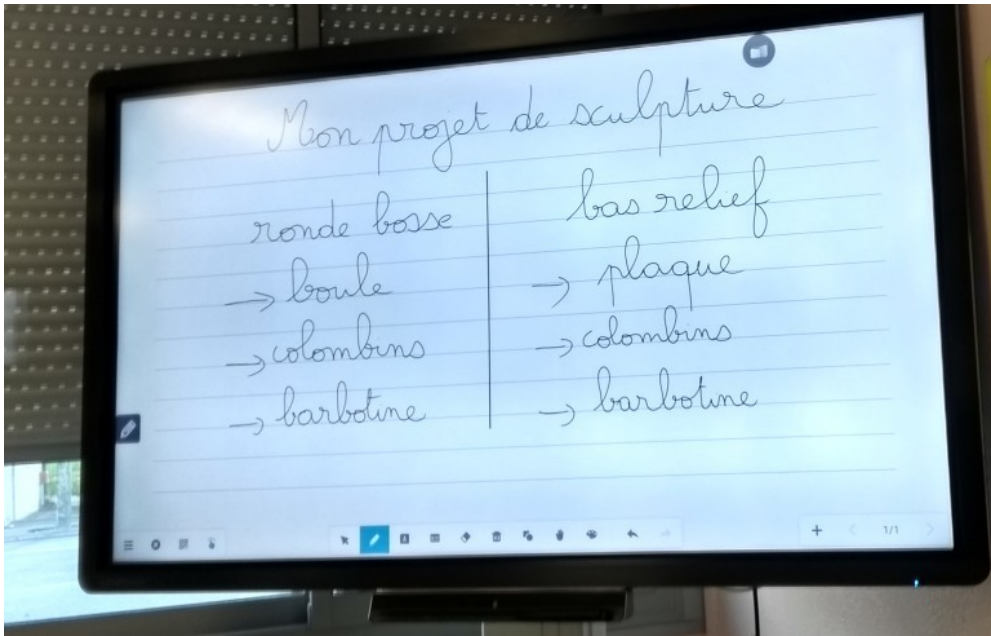 Mon projet de sculpture
ronde bosse
→ boule
→ colombins
→ barbotine
bas relief
→ plaque
→ colombins
→ barbotine
1/1